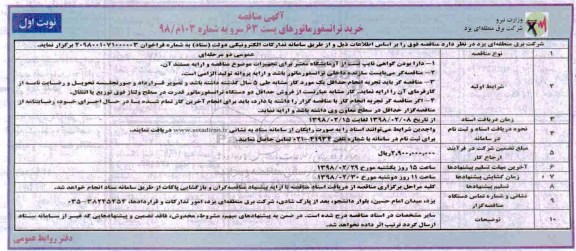 آگهی مناقصه
خرید ترانسفورماتورهای پست ۶۳ سرو به شماره ۱۰۳/م/۹۸
نوبت اول
وزارت نیرو
شرکت برق منطقه‌ای یزد
شرکت برق منطقه‌ای یزد در نظر دارد مناقصه فوق را بر اساس اطلاعات ذیل و از طریق سامانه تدارکات الکترونیکی دولت (ستاد) به شماره فراخوان ۲۰۹۸۰۰۱۰۷۱۰۰۰۰۰۳ برگزار نماید.
۱ نوع مناقصه عمومی دو مرحله‌ای
۲ شرایط اولیه
۱- دارا بودن گواهی تایپ تست از آزمایشگاه معتبر برای تجهیزات موضوع مناقصه و ارایه مستند آن.
۲- مناقصه‌گر می‌بایست سازنده داخلی ترانسفورماتور باشد و ارایه پروانه تولید الزامی است.
۳- مناقصه گر باید تجربه انجام حداقل یک مورد کار مشابه طی ۵ سال گذشته داشته باشد و تصویر قرارداد و صورتجلسه تحویل و رضایت نامه از کارفرمای آن را ارایه نماید. کار مشابه عبارتست از فروش حداقل دو دستگاه ترانسفورماتور قدرت در سطح ولتاژ فوق توزیع یا انتقال.
۴- اگر مناقصه گر تجربه انجام کار با مناقصه گزار را داشته یا دارد، باید برای انجام آخرین کار تمام شده یا در حال اجرای خود، رضایتنامه از مناقصه‌گزار حداقل در سطح معاون وی داشته باشد و ارایه نماید.
۳ زمان دریافت اسناد از تاریخ ۱۳۹۸/۰۲/۰۸ لغایت ۱۳۹۸/۰۲/۱۵
۴ نحوه دریافت اسناد و ثبت نام در سامانه
واجدین شرایط می‌توانند اسناد را به صورت رایگان از سامانه ستاد به نشانی www.setadiran.ir دریافت نمایند.
برای ثبت نام در سامانه با شماره تلفن ۴۱۹۳۴-۰۲۱ تماس حاصل نمایند.
۵ مبلغ تضمین شرکت در فرآیند ارجاع کار ۲،۹۰۰،۰۰۰،۰۰۰ ریال
۶ آخرین مهلت تسلیم پیشنهادها ساعت ۱۵ روز یکشنبه مورخ ۱۳۹۸/۰۲/۲۹
۷ زمان گشایش پیشنهادها ساعت ۱۱ روز دوشنبه مورخ ۱۳۹۸/۰۲/۳۰
۸ تسلیم پیشنهادها کلیه مراحل برگزاری مناقصه از دریافت اسناد مناقصه تا ارایه پیشنهاد مناقصه‌گران و بازگشایی پاکات از طریق سامانه ستاد انجام خواهد شد.
۹ نشانی و شماره تماس دستگاه مناقصه‌گزار یزد، میدان امام حسین، بلوار دانشجو، بعد از پارک شادی، شرکت برق منطقه‌ای یزد، امور تدارکات و قراردادها، ۳۸۲۴۵۴۵۴-۰۳۵
۱۰ توضیحات سایر مشخصات در اسناد مناقصه درج شده است. در ضمن به پیشنهادهای مبهم، مشروط، مخدوش، فاقد تضمین و پیشنهادهایی که غیر از سامانه ستاد ارسال گردد ترتیب اثر داده نخواهد شد.
دفتر روابط عمومی